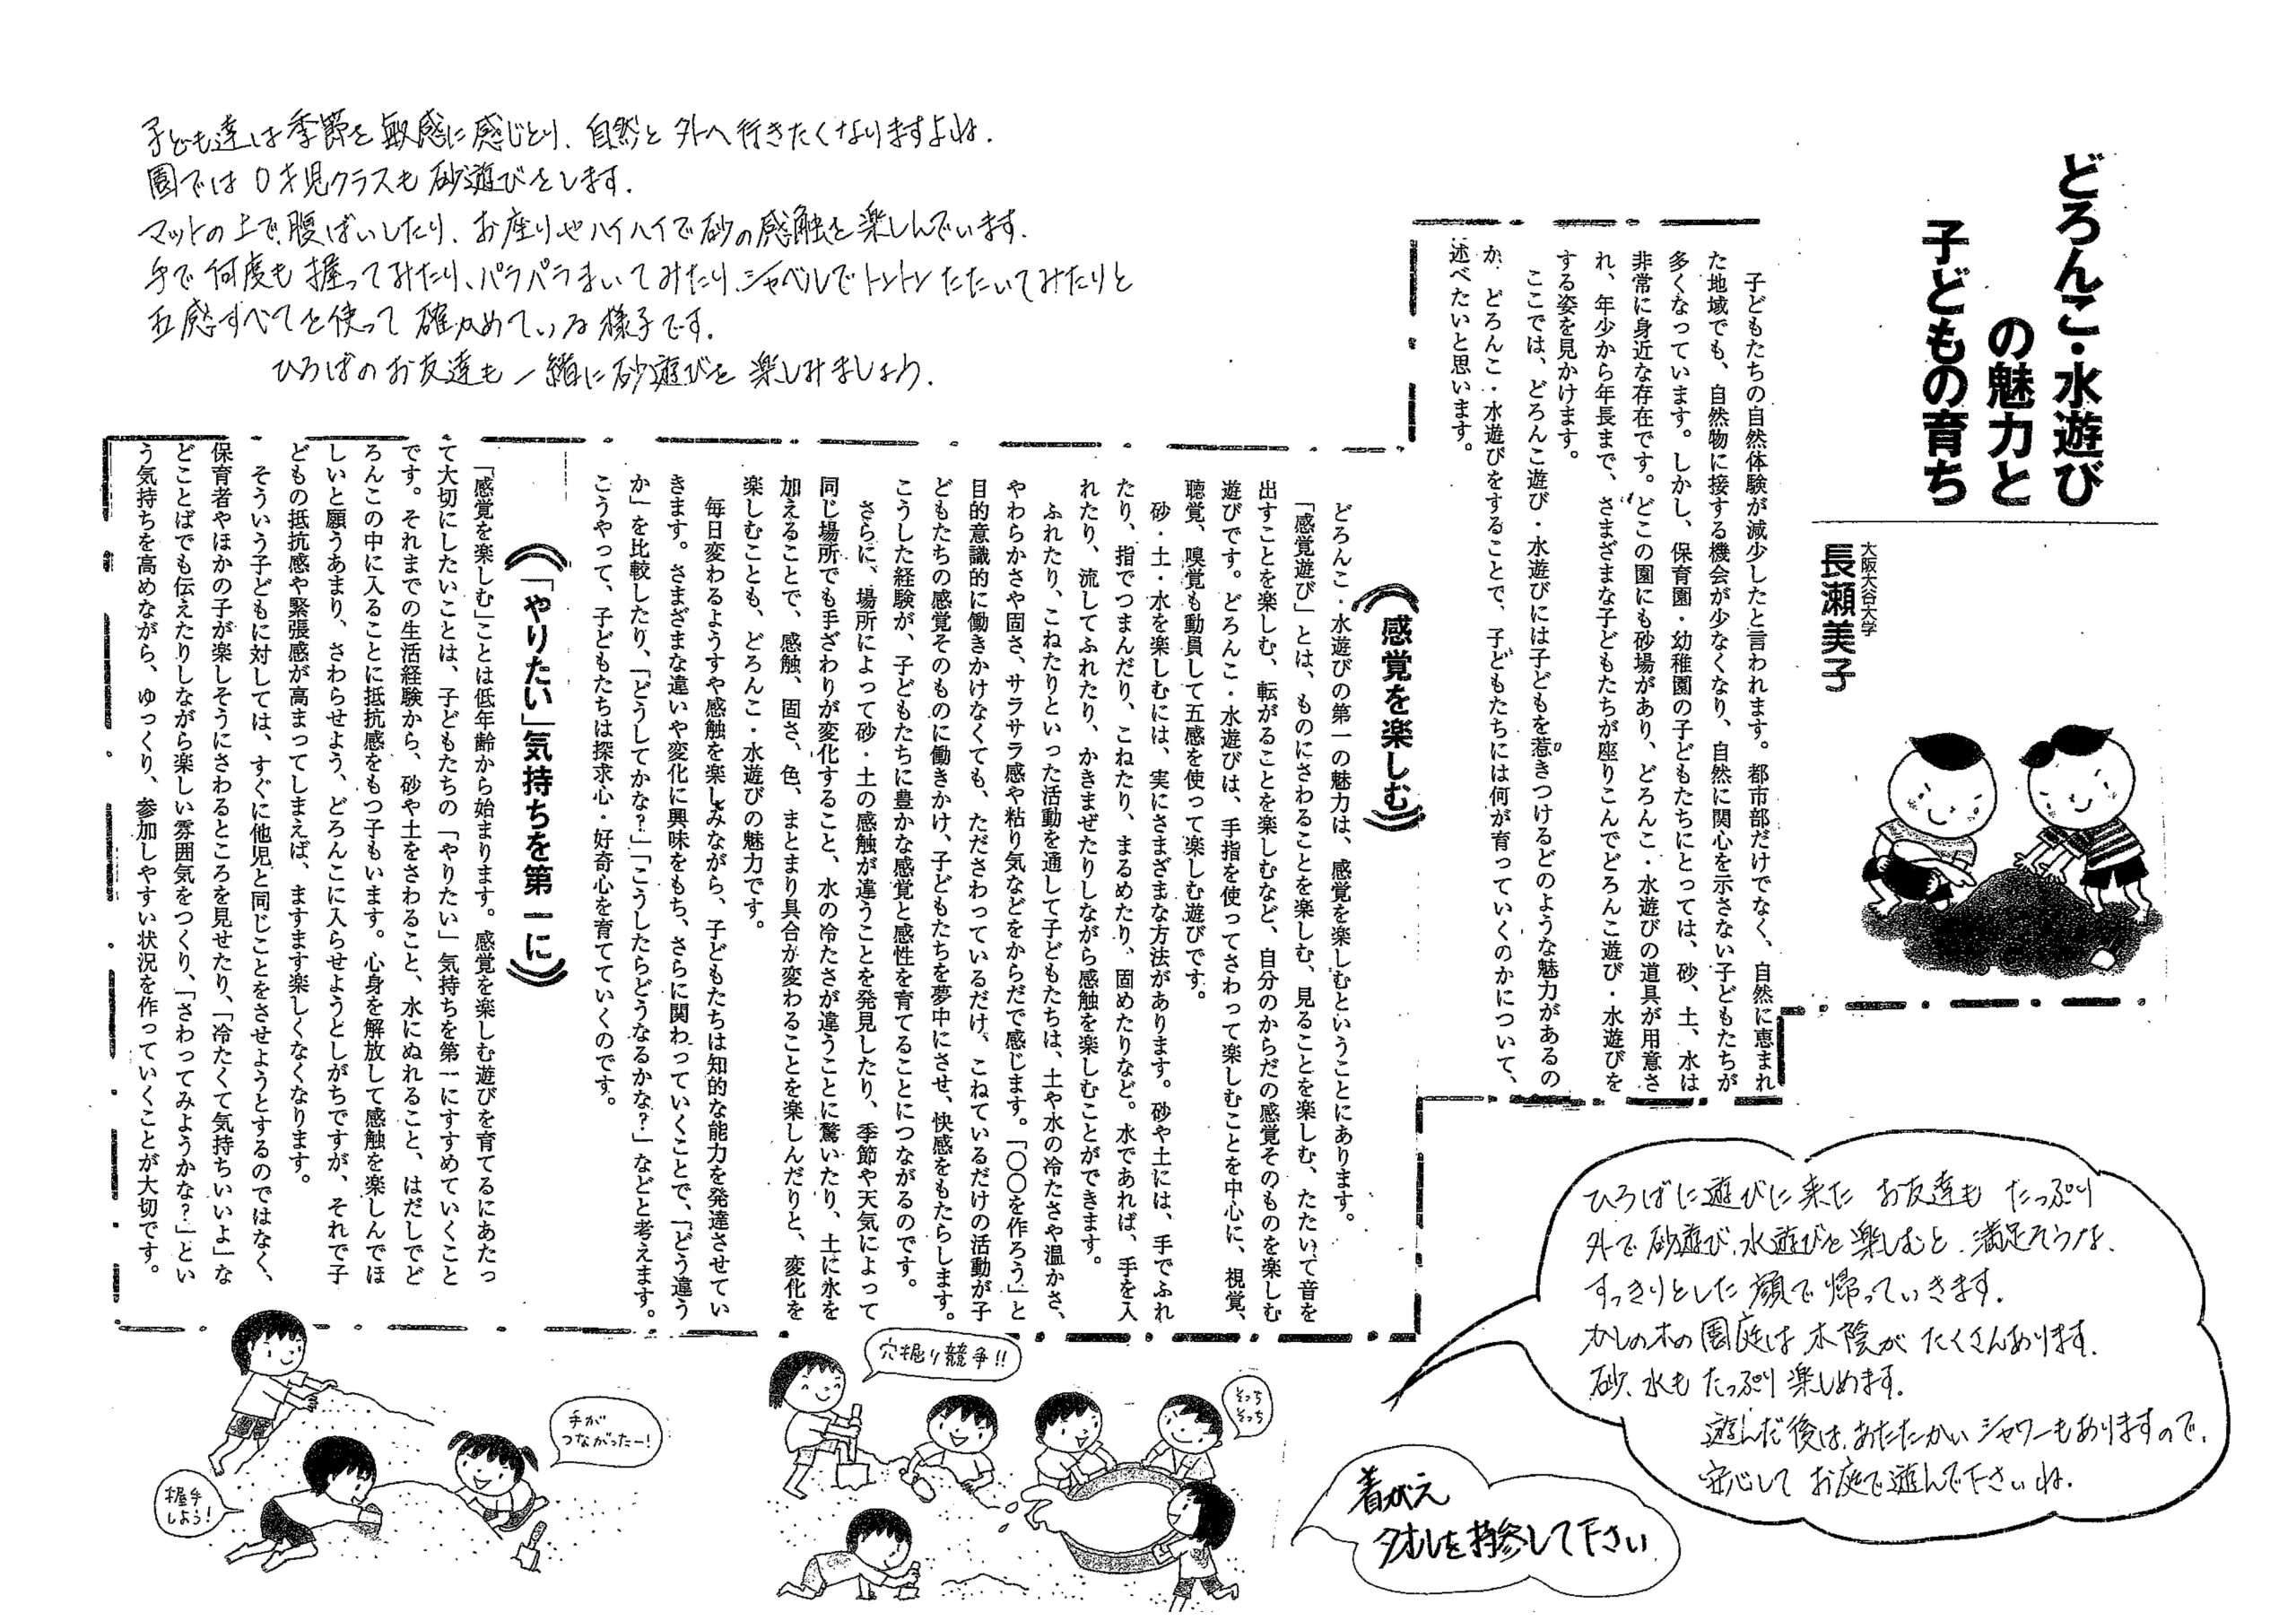 どろんこ・水遊び
の魅力と
子どもの育ち
大阪大谷大学
長瀬美子
子どもたちの自然体験が減少したと言われます。都市部だけでなく、自然に恵まれ
た地域でも、自然物に接する機会が少なくなり、自然に関心を示さない子どもたちが
多くなっています。しかし、保育園・幼稚園の子どもたちにとっては、砂、土、水は
非常に身近な存在です。どこの園にも砂場があり、どろんこ・水遊びの道具が用意さ
れ、年少から年長まで、さまざまな子どもたちが座りこんでどろんこ遊び・水遊びを
する姿を見かけます。
ここでは、どろんこ遊び・水遊びには子どもを惹きつけるどのような魅力があるの
か、どろんこ・水遊びをすることで、子どもたちには何が育っていくのかについて、
述べたいと思います。
《感覚を楽しむ》
どろんこ・水遊びの第一の魅力は、感覚を楽しむということにあります。
「感覚遊び」とは、ものにさわることを楽しむ、見ることを楽しむ、たたいて音を
出すことを楽しむ、転がることを楽しむなど、自分のからだの感覚そのものを楽しむ
遊びです。どろんこ・水遊びは、手指を使ってさわって楽しむことを中心に、視覚、
聴覚、嗅覚も動員して五感を使って楽しむ遊びです。
砂・土・水を楽しむには、実にさまざまな方法があります。砂や土には、手でふれ
たり、指でつまんだり、こねたり、まるめたり、固めたりなど。水であれば、手を入
れたり、流してふれたり、かきまぜたりしながら感触を楽しむことができます。
ふれたり、こねたりといった活動を通して子どもたちは、土や水の冷たさや温かさ、
やわらかさや固さ、サラサラ感や粘り気などをからだで感じます。「○○を作ろう」と
目的意識的に働きかけなくても、たださわっているだけ、こねているだけの活動が子
どもたちの感覚そのものに働きかけ、子どもたちを夢中にさせ、快感をもたらします。
こうした経験が、子どもたちに豊かな感覚と感性を育てることにつながるのです。
さらに、場所によって砂・土の感触が違うことを発見したり、季節や天気によって
同じ場所でも手ざわりが変化すること、水の冷たさが違うことに驚いたり、土に水を
加えることで、感触、固さ、色、まとまり具合が変わることを楽しんだりと、変化を
楽しむことも、どろんこ・水遊びの魅力です。
毎日変わるようすや感触を楽しみながら、子どもたちは知的な能力を発達させてい
きます。さまざまな違いや変化に興味をもち、さらに関わっていくことで、「どう違う
か」を比較したり、「どうしてかな？」「こうしたらどうなるかな？」などと考えます。
こうやって、子どもたちは探求心・好奇心を育てていくのです。
《「やりたい」気持ちを第一に》
「感覚を楽しむ」ことは低年齢から始まります。感覚を楽しむ遊びを育てるにあたっ
て大切にしたいことは、子どもたちの「やりたい」気持ちを第一にすすめていくこと
です。それまでの生活経験から、砂や土をさわること、水にぬれること、はだしでど
ろんこの中に入ることに抵抗感をもつ子もいます。心身を解放して感触を楽しんでほ
しいと願うあまり、さわらせよう、どろんこに入らせようとしがちですが、それで子
どもの抵抗感や緊張感が高まってしまえば、ますます楽しくなくなります。
そういう子どもに対しては、すぐに他児と同じことをさせようとするのではなく、
保育者やほかの子が楽しそうにさわるところを見せたり、「冷たくて気持ちいいよ」な
どことばでも伝えたりしながら楽しい雰囲気をつくり、「さわってみようかな？」とい
う気持ちを高めながら、ゆっくり、参加しやすい状況を作っていくことが大切です。
子ども達は季節を敏感に感じとり、自然と外へ行きたくなりますよね.
園では0才児クラスも砂遊びをします.
マットの上で、腹ばいしたり、お座りやハイハイで砂の感触を楽しんでいます.
手で何度も握ってみたり、パラパラまいてみたり、シャベルでトントンたたいてみたりと
五感すべてを使って確かめている様子です.
ひろばのお友達も一緒に砂遊びを楽しみましょう.
ひろばに遊びに来たお友達もたっぷり
外で砂遊び、水遊びを楽しむと、満足そうな、
すっきりとした顔で帰っていきます.
かしの木の園庭は木陰がたくさんあります.
砂、水もたっぷり楽しめます.
遊んだ後は、あたたかいシャワーもありますので、
安心してお庭で遊んで下さいね.
着がえ
タオルを持参して下さい
穴掘り競争!!
そっち
そっち
手が
つながったー!
握手
しよう!